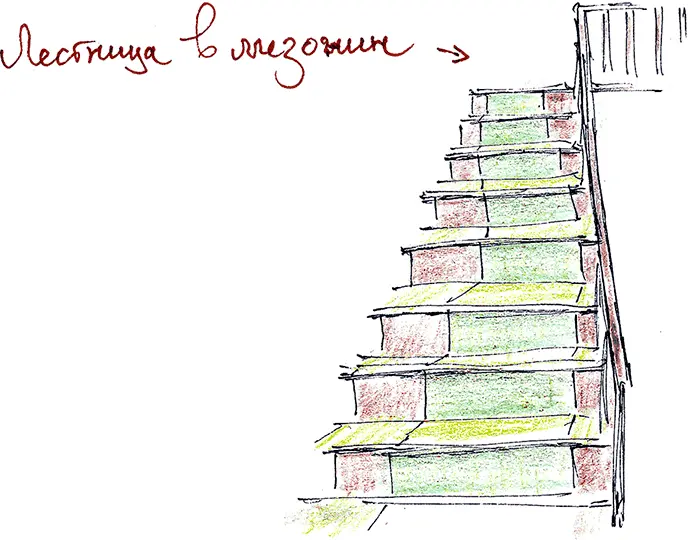 Лестница в мезонин →